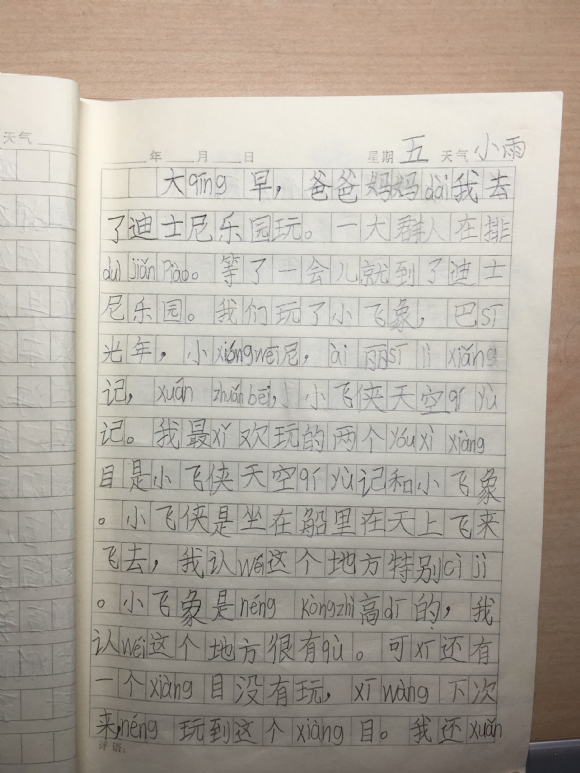 天气
年 月 日 星期 五 天气 小雨
大qīng早，爸爸妈妈dài我去
了迪士尼乐园玩。一大群人在排
duì jiǎn Piào。等了一会儿就到了迪士
尼乐园。我们玩了小飞象，巴sī
光年，小xióngwéi尼，ài丽sī jì xiǎng
记，xuán zhuǎn bēi，小飞侠天空qí yù
记。我最xǐ欢玩的两个yóu xì xiàng
目是小飞侠天空qí yù记和小飞象
。小飞侠是坐在船里在天上飞来
飞去，我认wéi这个地方特别cì jī
。小飞象是néng kòngzhì高dī的，我
认wéi这个地方很有qù。可xī还有
一个xiàng目没有玩，xī wàng下次
来，néng玩到这个xiàng目。我还xuǎn
评语：